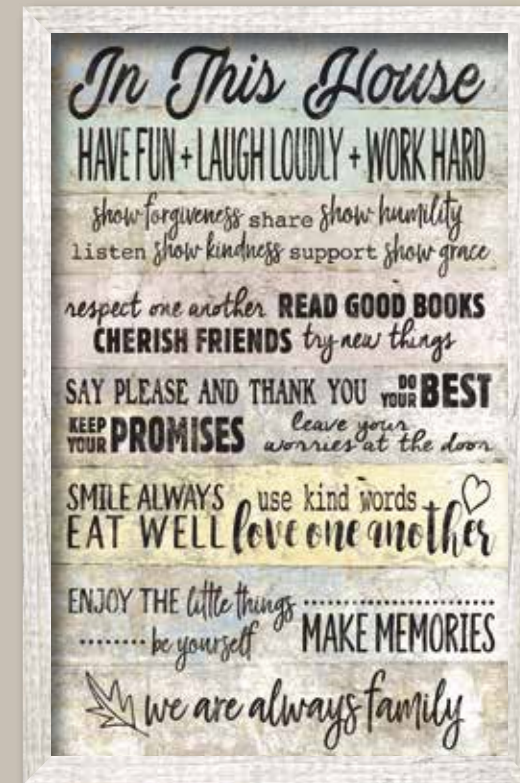 In This House
HAVE FUN + LAUGH LOUDLY + WORK HARD
show forgiveness share show humility
listen show kindness support show grace
respect one another READ GOOD BOOKS
CHERISH FRIENDS try new things
SAY PLEASE AND THANK YOU DO YOUR BEST
KEEP YOUR PROMISES leave your worries at the door
SMILE ALWAYS use kind words
EAT WELL love one another
ENJOY THE little things
be yourself MAKE MEMORIES
we are always family